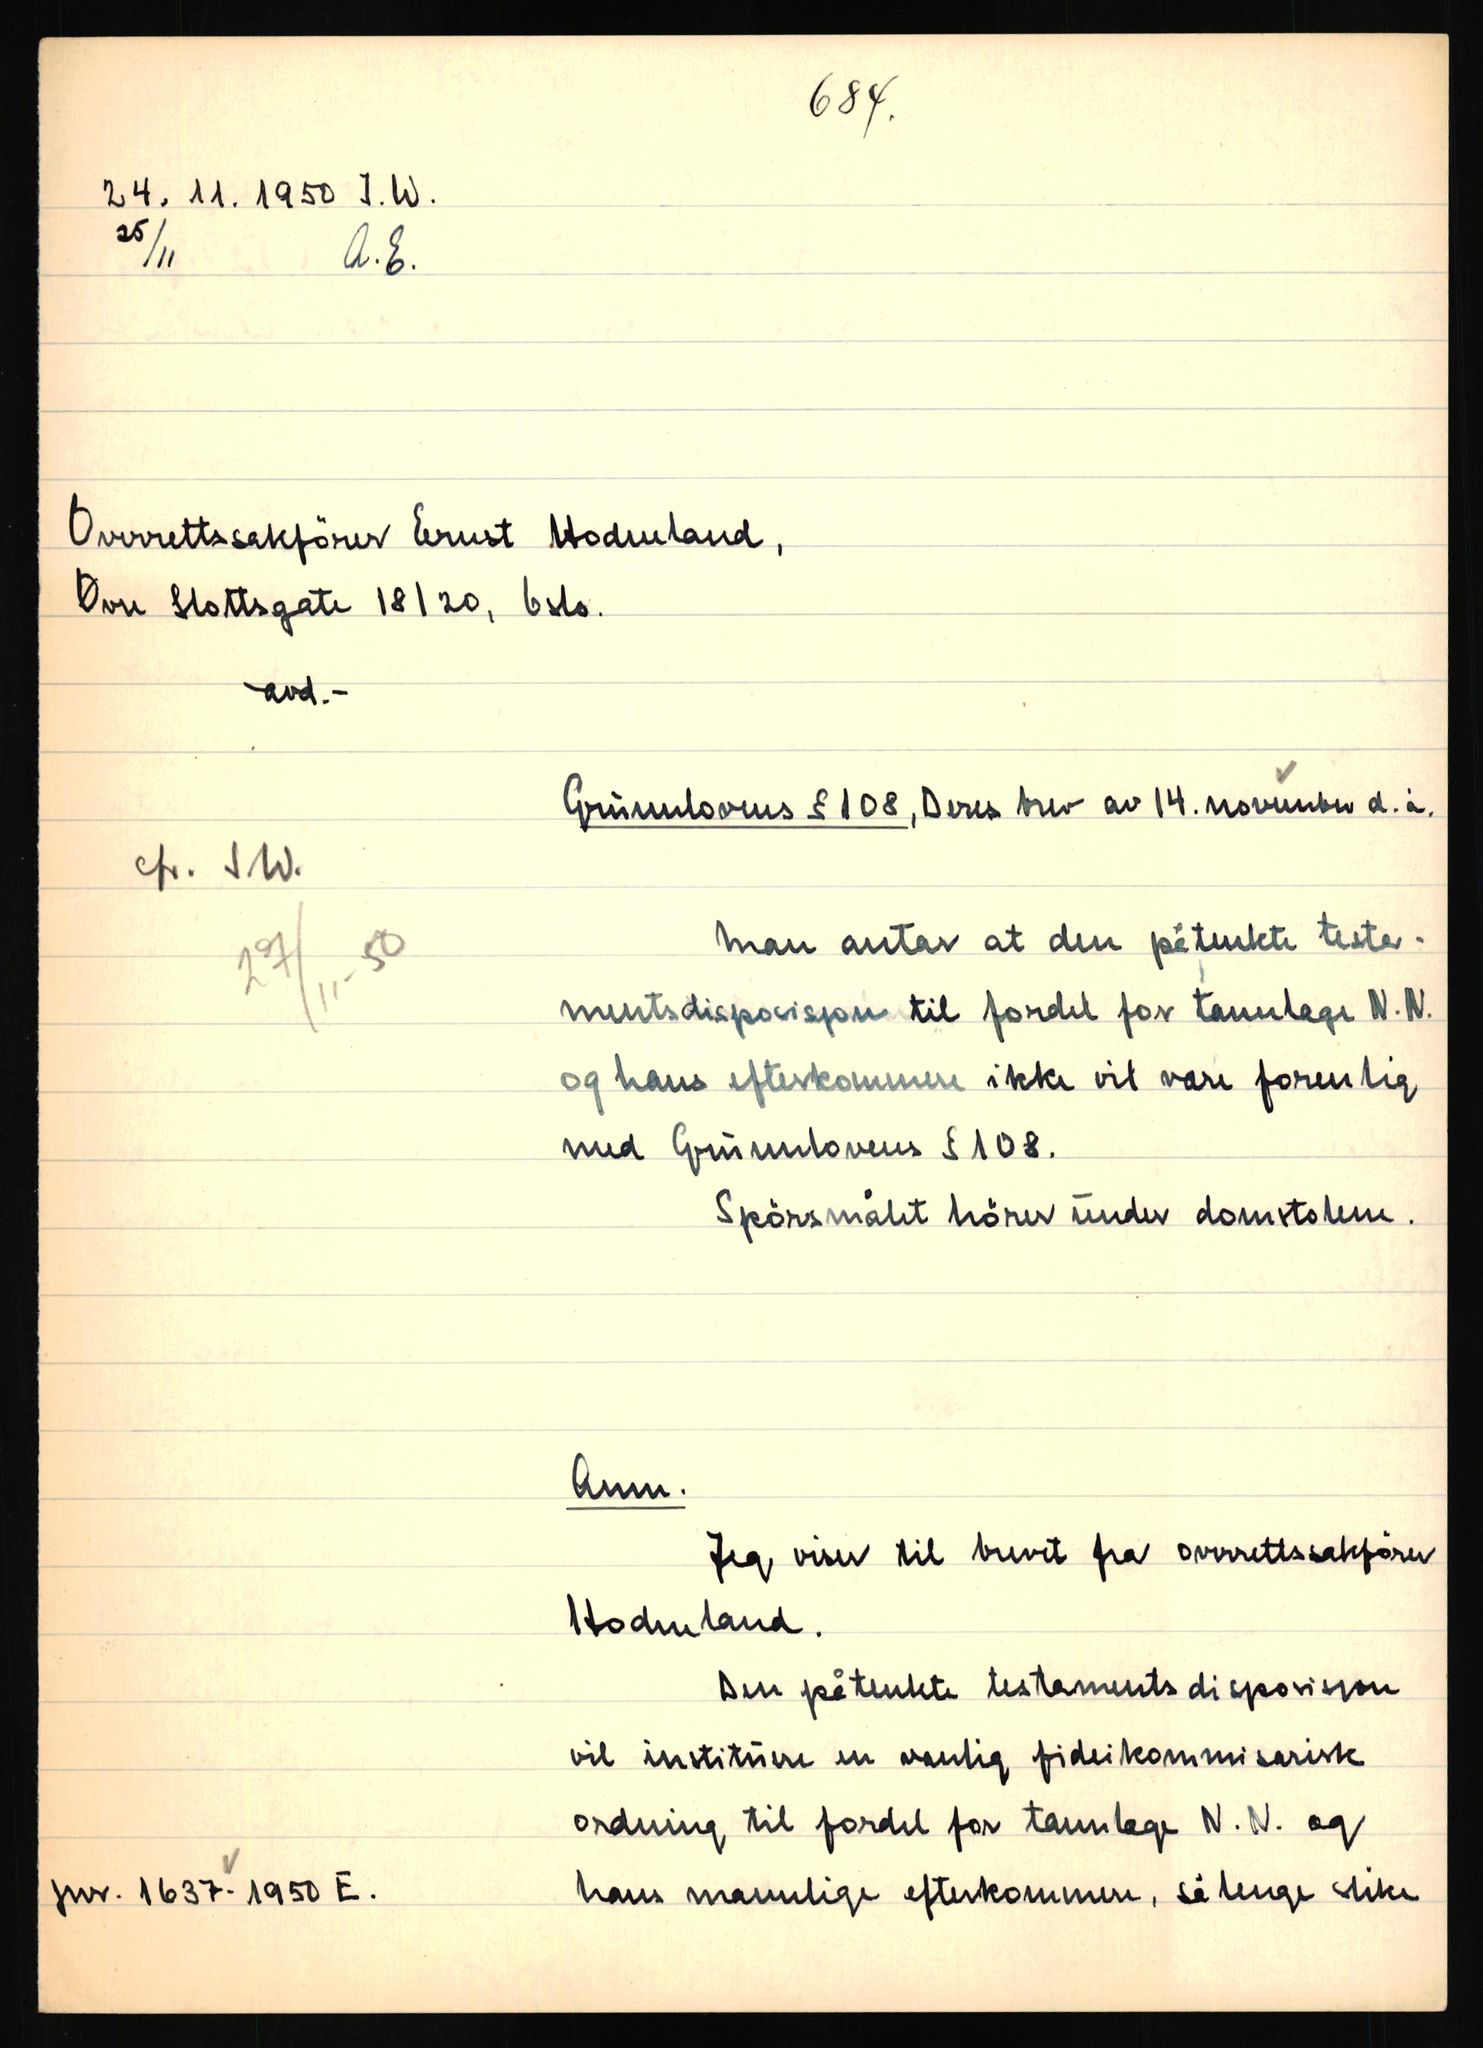 684.
24. 11. 1950 I.W.
25/11 A.E.
Overrettssakförer Ernst Hodneland,
Övre Slottsgate 18/20, Oslo.
avd.-
Grunnlovens § 108, Deres brev av 14. november d.å.
cfr. I W.
27/11-50
Man antar at den påtenkte testa-
mentsdisposisjon til fordel for tannlege N.N.
og hans efterkommere ikke vil være forenlig
med Grunnlovens § 108.
Spörsmålet hörer under domstolene.
Anm.
Jeg viser til brevet fra overrettssakförer
Hodneland.
Den påtenkte testamentsdisposisjon
vil instituere en vanlig fideikommisarisk
ordning til fordel for tannlege N.N. og
jnr. 1637-1950 E.
hans mannlige efterkommere, så lenge slike